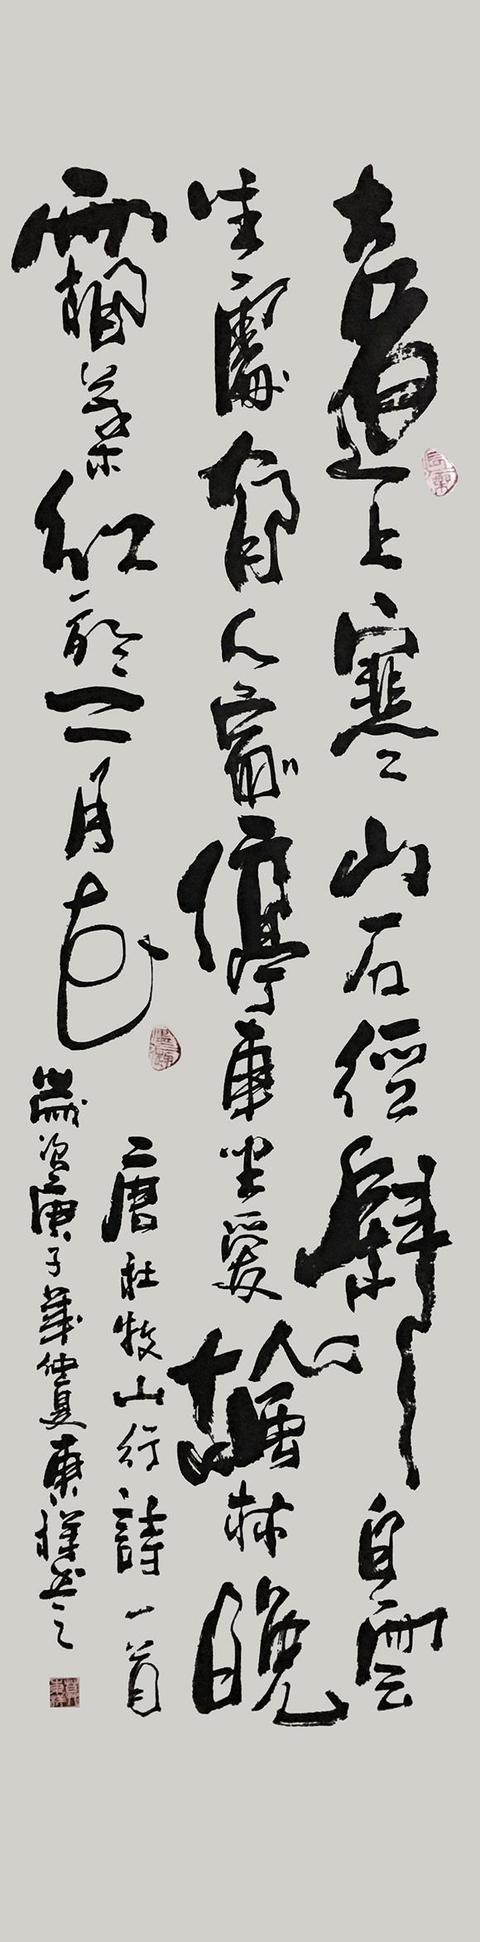 遠上寒山石徑斜白雲
生處有人家停車坐愛楓林晚
霜葉紅於二月花
唐杜牧山行詩一首
歲次庚子仲夏東書之